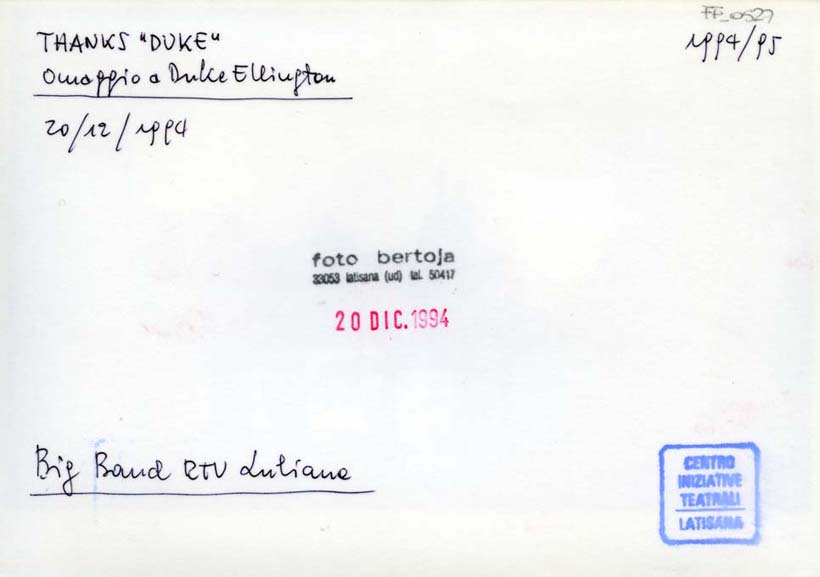 FF_0527
THANKS "DUKE"
1994/95
Omaggio a Duke Ellington
20/12/1994
foto bertoja
33053 latisana (ud) tel. 50417
20 DIC. 1994
Big Band RTV Lubiana
CENTRO
INIZIATIVE
TEATRALI
LATISANA